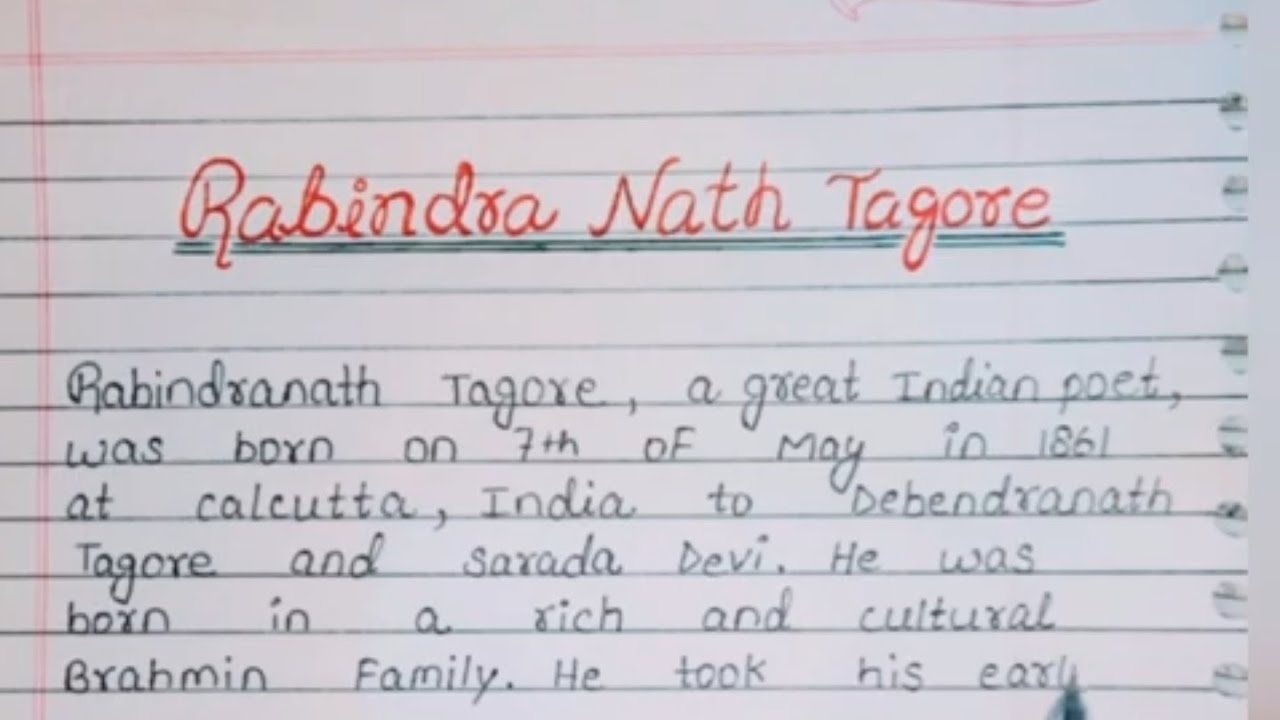 Rabindra Nath Tagore
Rabindranath Tagore, a great Indian poet,
was born on 7th of May in 1861
at calcutta, India to Debendranath
Tagore and Sarada Devi. He was
born in a rich and cultural
Brahmin Family. He took his earl